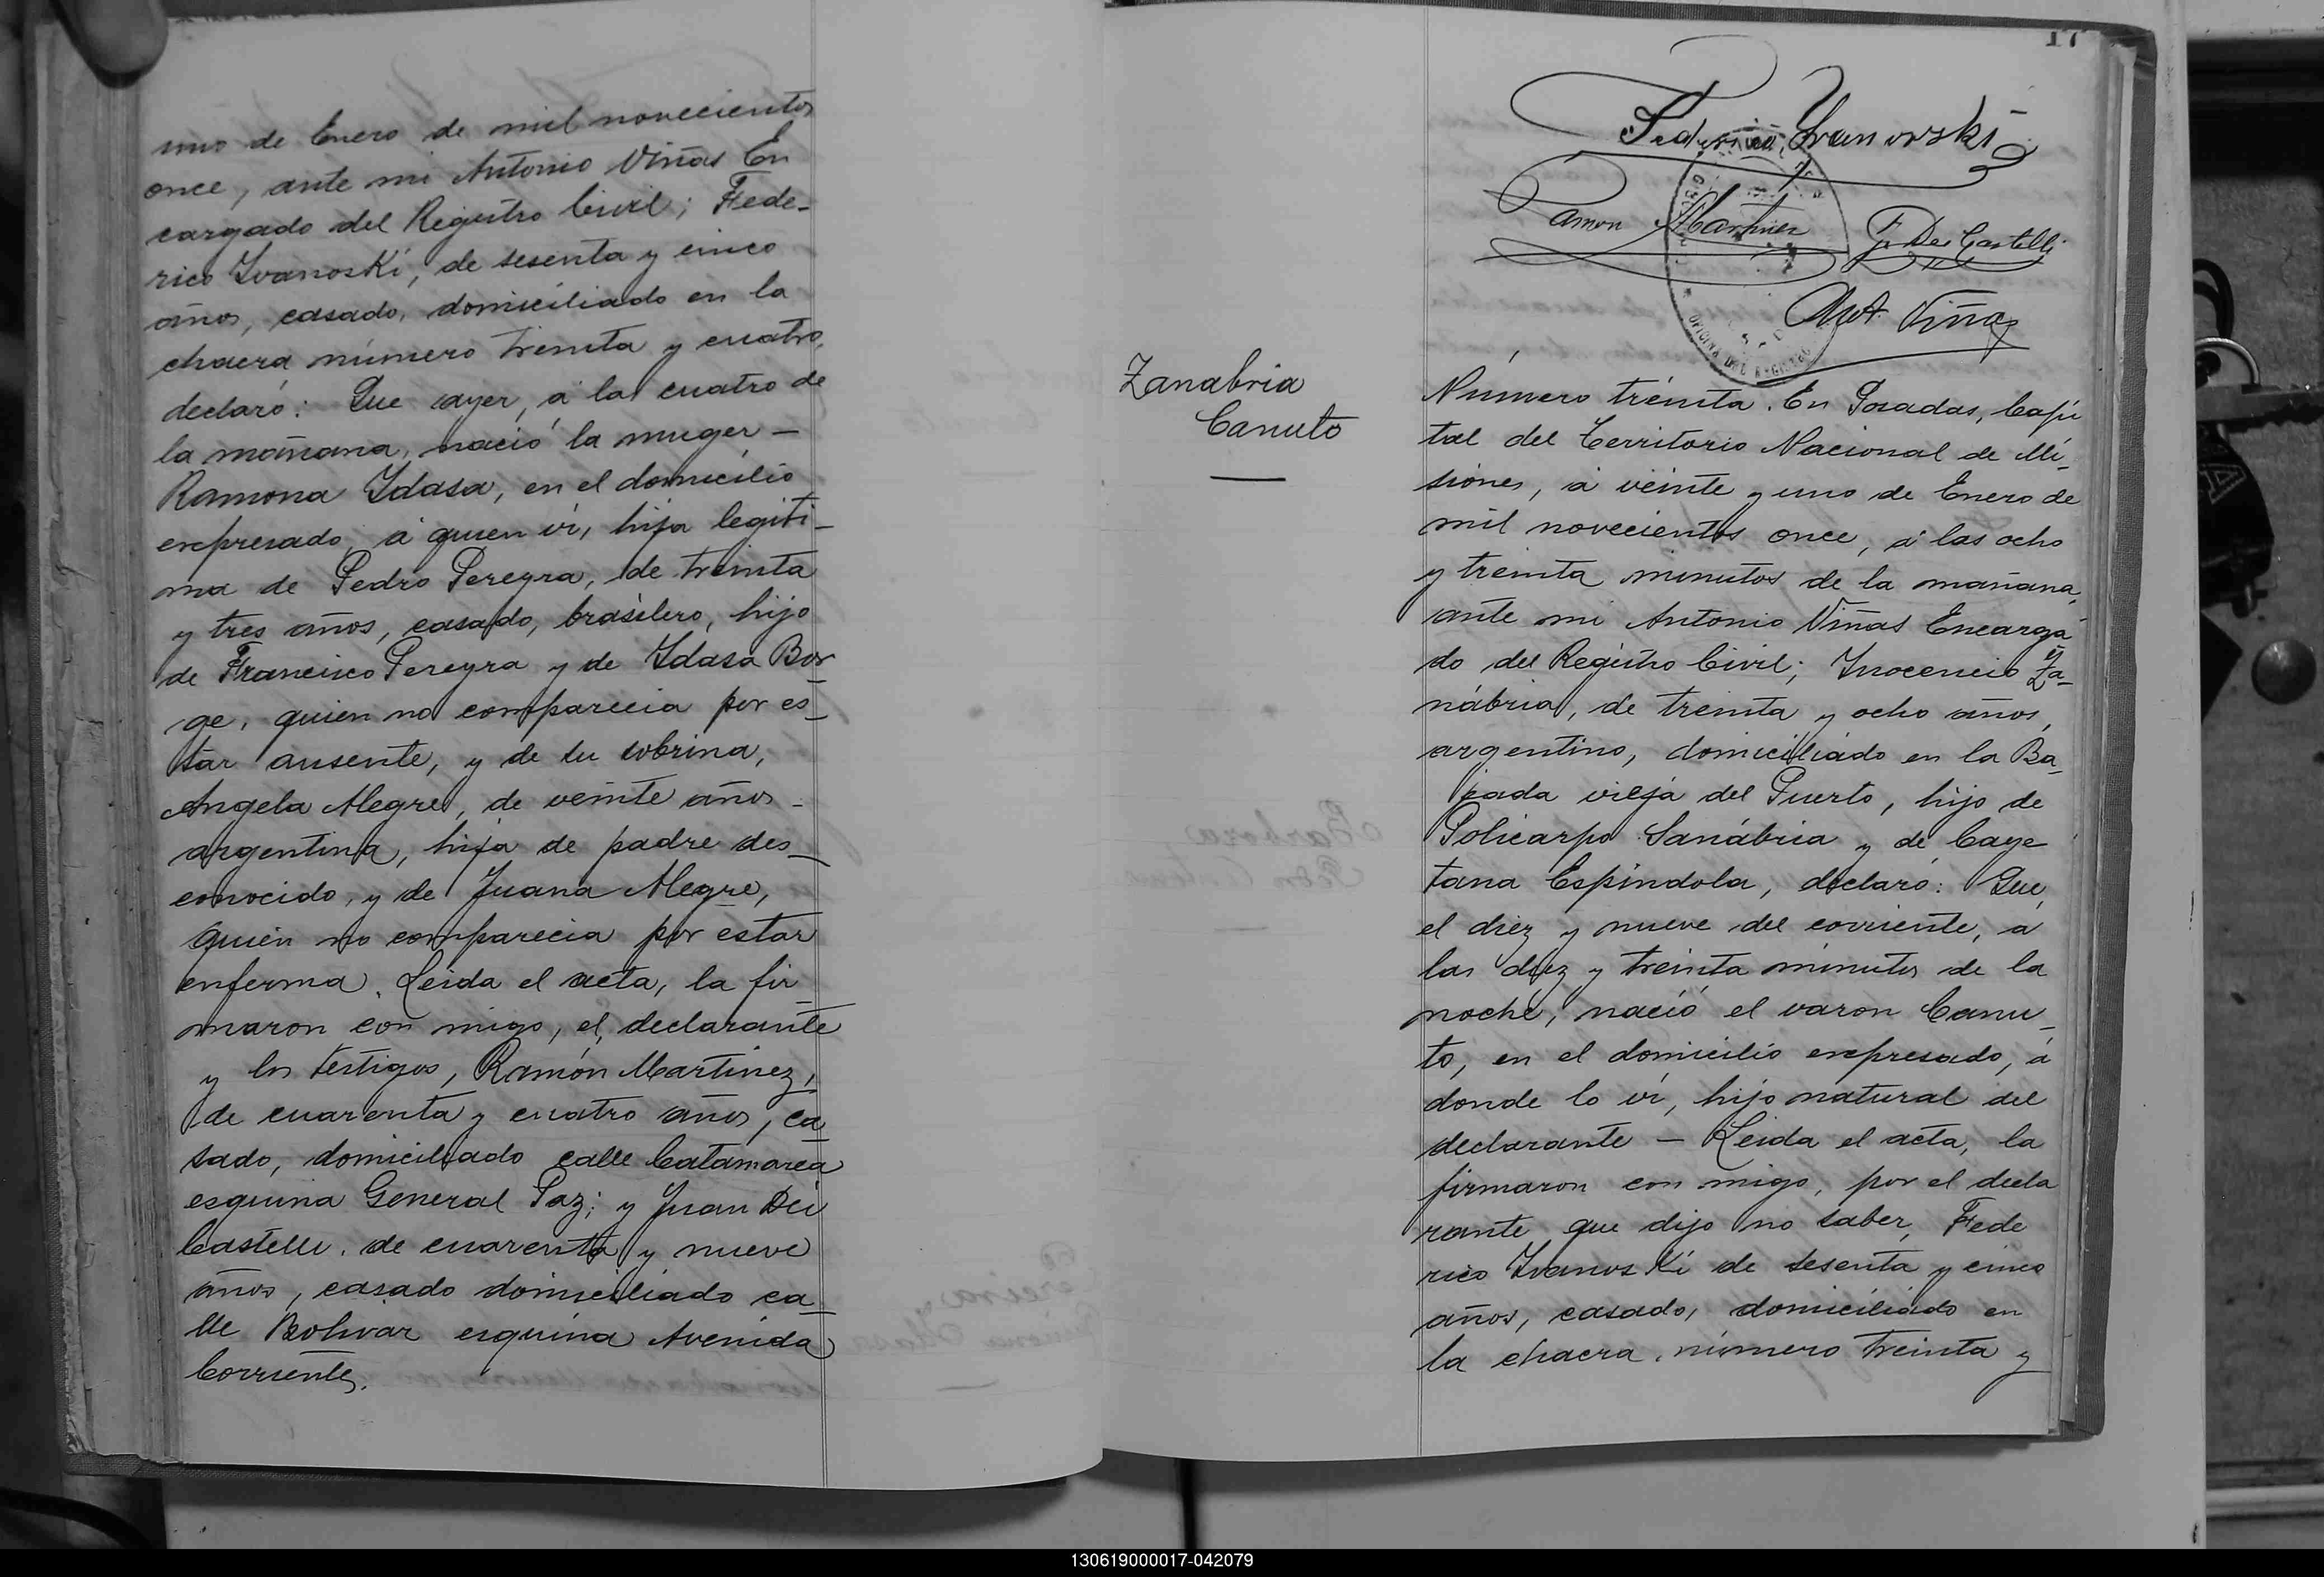 uno de Enero de mil novecientos
once, ante mi Antonio Viñas En
cargado del Registro Civil; Fede-
rico Ivanoski, de sesenta y cinco
años, casado, domiciliado en la
chacra número treinta y cuatro,
declaró: Que ayer, á las cuatro de
la mañana, nació la muger —
Ramona Idasa, en el domicilio
expresado á quien ví, hija legíti-
ma de Pedro Pereyra, de treinta
y tres años, casado, brasilero, hijo
de Francisco Pereyra y de Idasa Bor
ge, quien no comparecia por es-
tar ausente, y de su sobrina,
Angela Alegre, de veinte años -
argentina, hija de padre des-
conocido, y de Juana Alegre,
quien no comparecia por estar
enferma. Leida el acta, la fir-
maron con migo, el declarante
y los testigos, Ramón Martinez,
de cuarenta y cuatro años, ca-
sado, domiciliado calle Catamarca
esquina General Paz; y Juan Dei
Castelli, de cuarenta y nueve
años, casado domiciliado ca-
lle Bolivar esquina Avenida
Corrientes.
17
Federico Ivanowski
Ramon Martinez
J. Dei Castelli
Ant. Viñas
OFICINA DEL REGISTRO
Zanabria
Canuto
Número treinta. En Posadas, Capi
tal del Territorio Nacional de Mi-
siones, á veinte y uno de Enero de
mil novecientos once, á las ocho
y treinta minutos de la mañana,
ante mi Antonio Viñas Encarga
do del Registro Civil; Inocencio Za-
nábria, de treinta y ocho años,
argentino, domiciliado en la Ba-
jada vieja del Puerto, hijo de
Policarpo Sanábria y de Caye
tana Espíndola, declaró: Que,
el diez y nueve del corriente, á
las diez y treinta minutos de la
noche, nació el varon Canu-
to, en el domicilio expresado, á
donde lo ví, hijo natural del
declarante — Leida el acta, la
firmaron con migo, por el decla
rante que dijo no saber, Fede
rico Ivanoski de sesenta y cinco
años, casado, domiciliado en
la chacra número treinta y
130619000017-042079